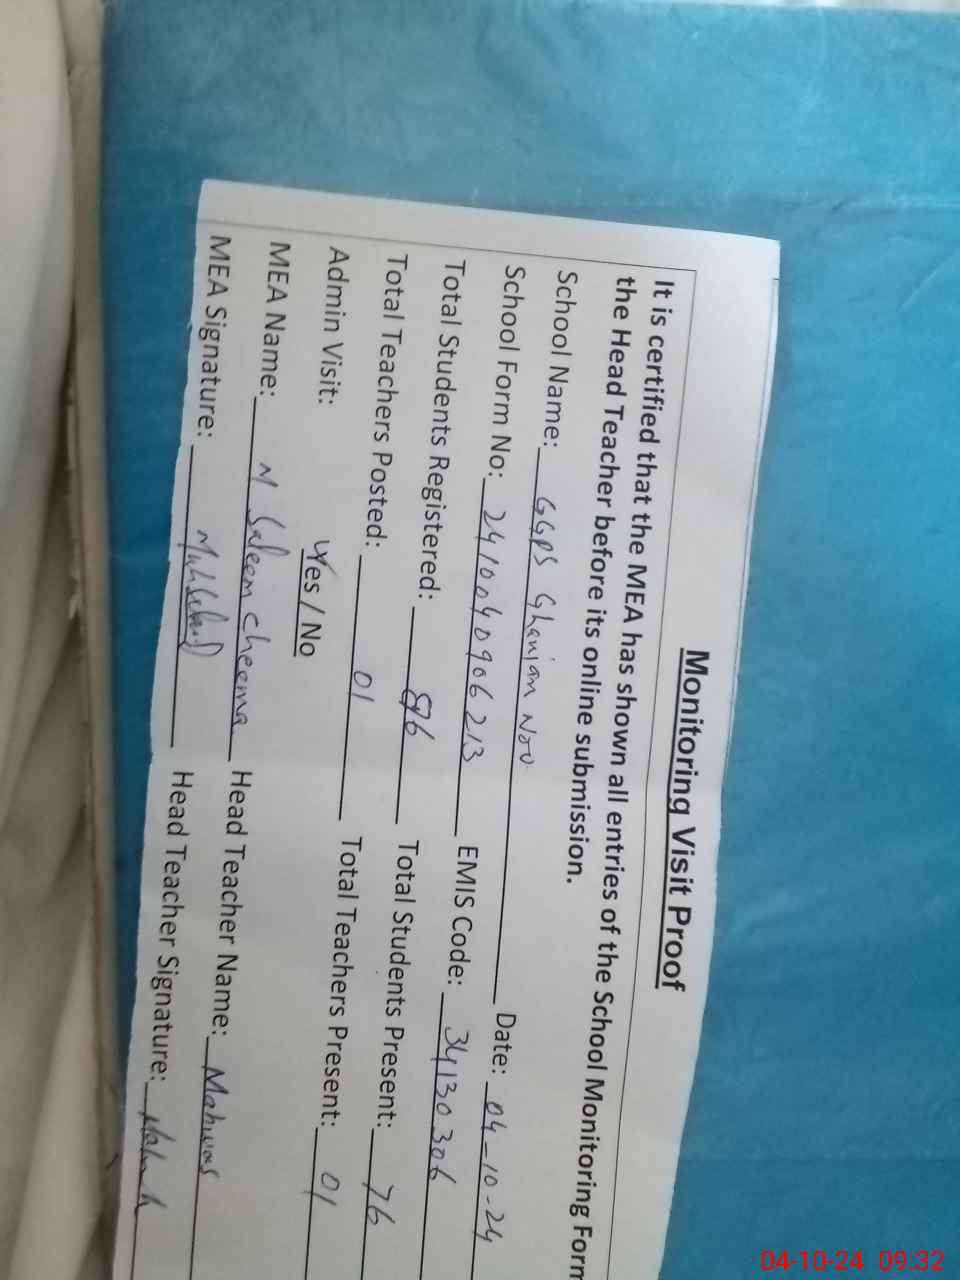 Monitoring Visit Proof
It is certified that the MEA has shown all entries of the School Monitoring Form
the Head Teacher before its online submission.
School Name: GGPS Ghanian Noo Date: 04-10-24
School Form No: 2410040906213 EMIS Code: 34130306
Total Students Registered: 86 Total Students Present: 76
Total Teachers Posted: 01 Total Teachers Present: 01
Admin Visit: Yes / No
MEA Name: M Saleem Cheema Head Teacher Name: Mahwas
MEA Signature: Head Teacher Signature:
04-10-24 09:32